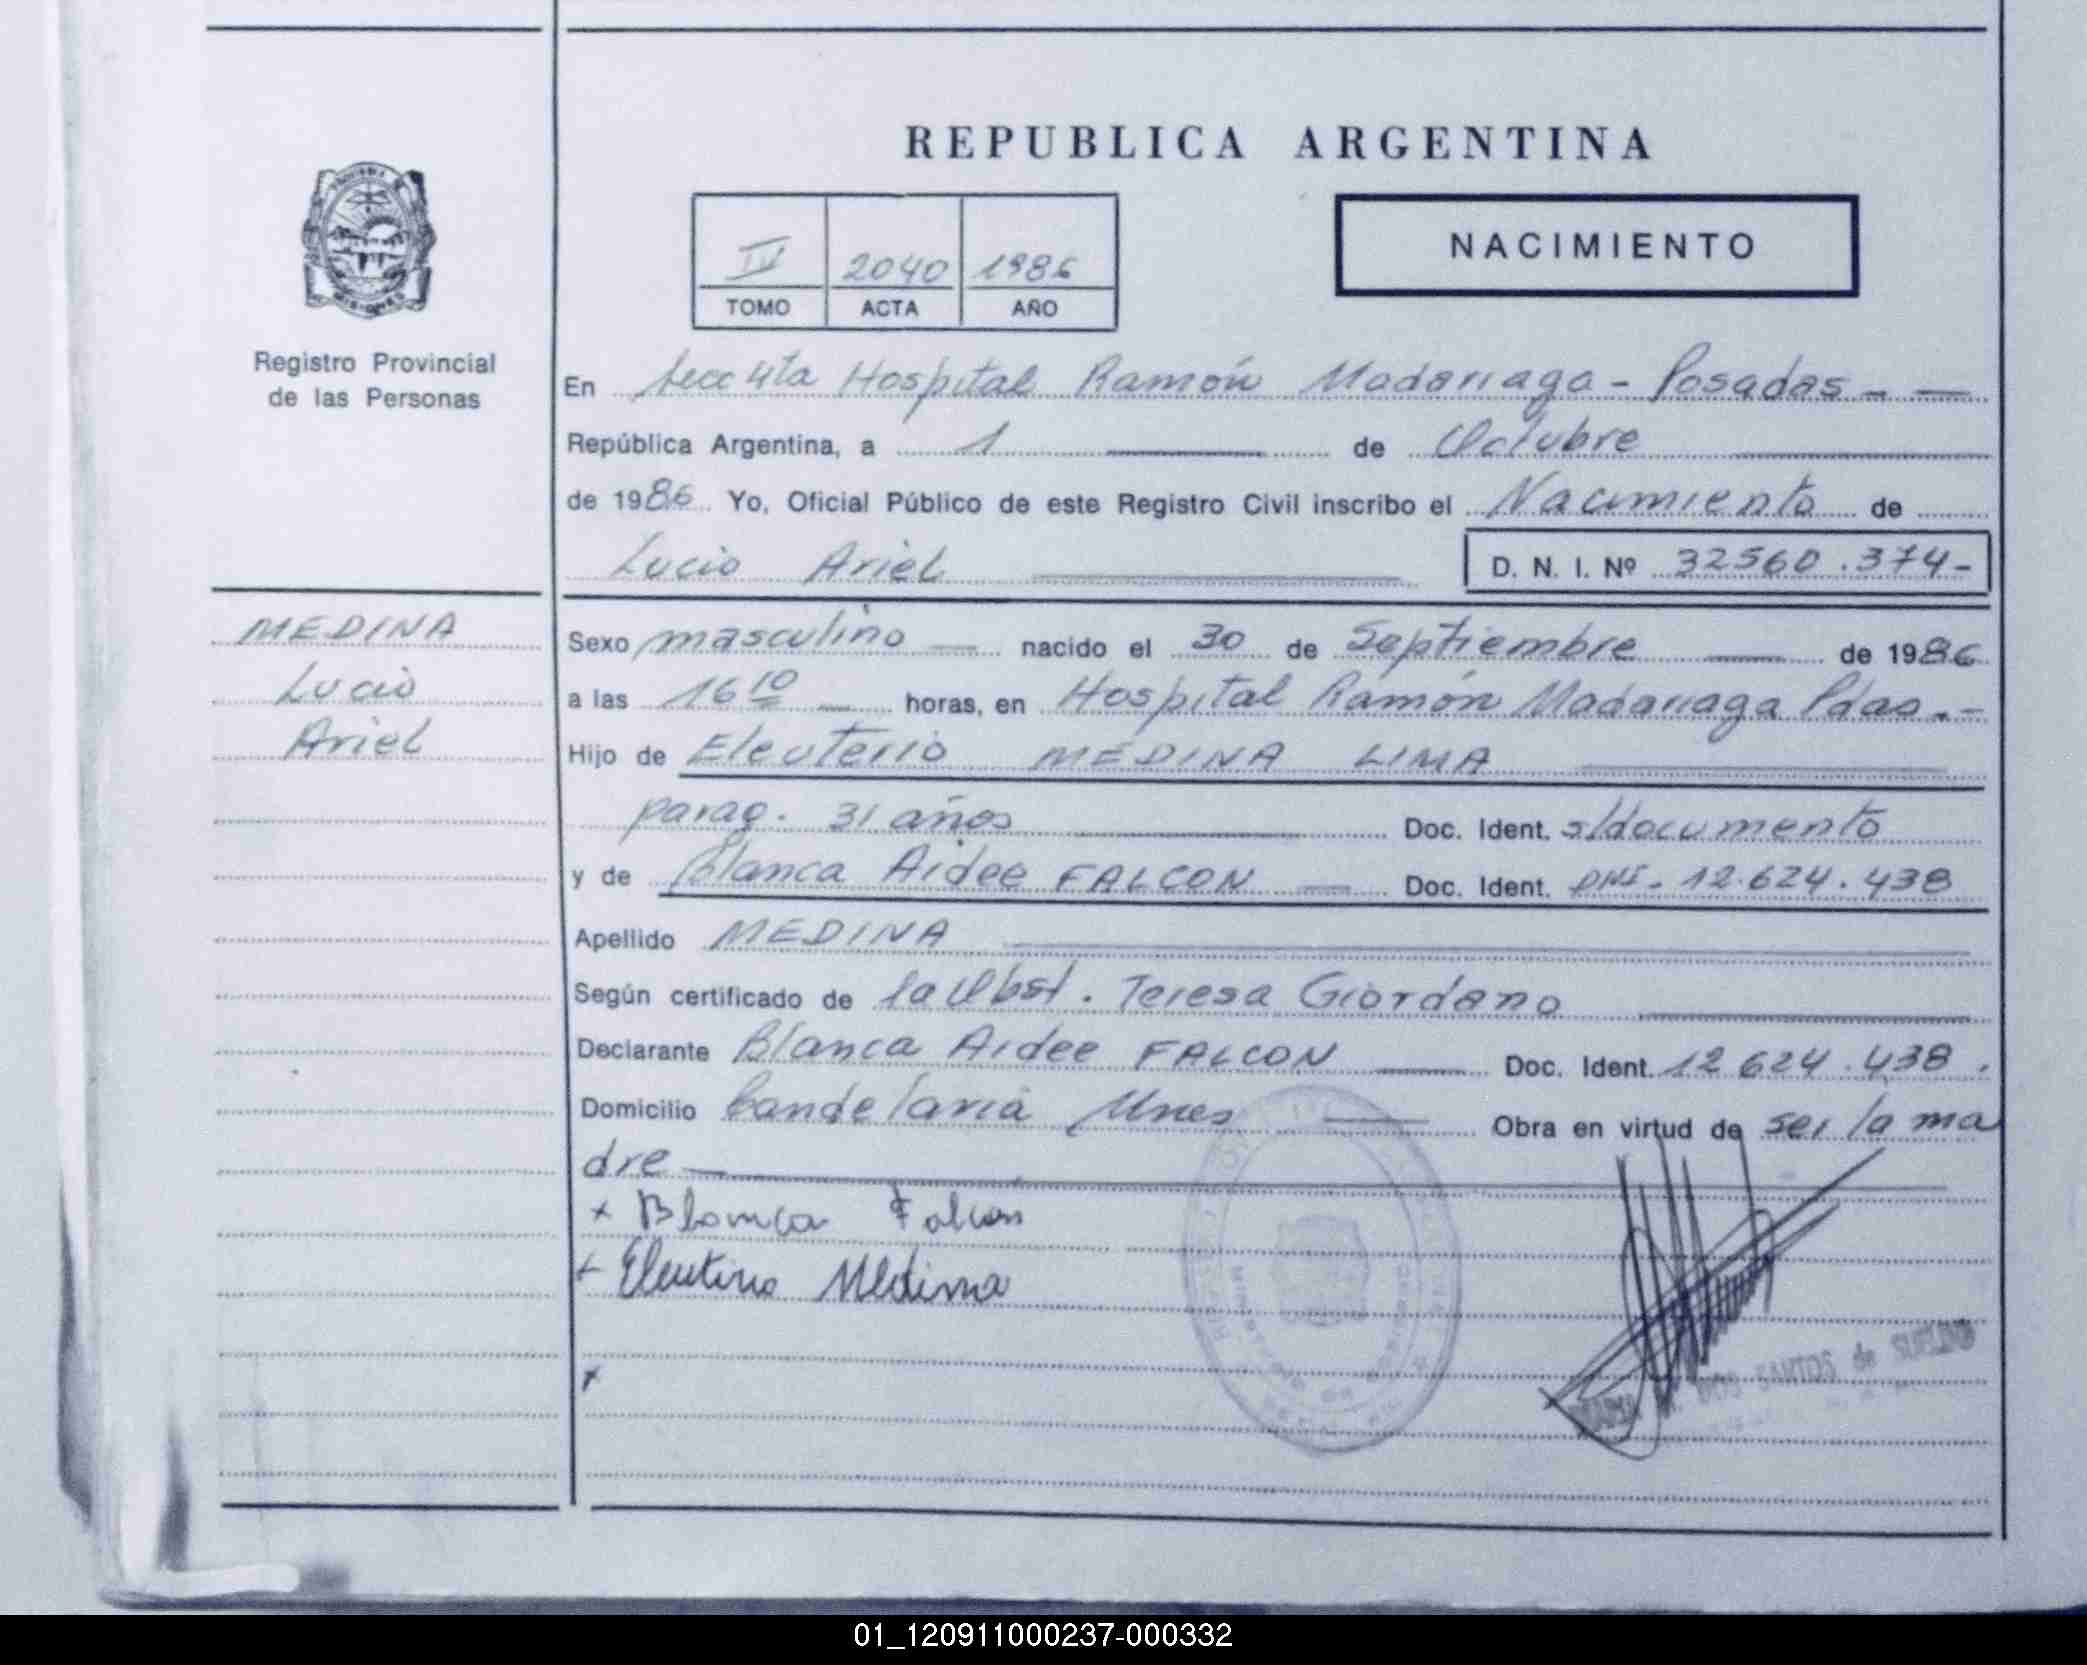 REPUBLICA ARGENTINA
NACIMIENTO
IV 2040 1986
TOMO ACTA AÑO
Registro Provincial
de las Personas
En Secc 4ta Hospital Ramón Madariaga - Posadas - —
República Argentina, a 1 de Octubre
de 1986 Yo, Oficial Público de este Registro Civil inscribo el Nacimiento de
Lucio Ariel D. N. I. Nº 32560.374-
MEDINA
Lucio
Ariel
Sexo masculino — nacido el 30 de Septiembre — de 1986
a las 16 10 — horas, en Hospital Ramón Madariaga Pdas.-
Hijo de Eleuterio MEDINA LIMA
parag. 31 años Doc. Ident. s/documento
y de Blanca Aidee FALCON — Doc. Ident. DNI- 12.624.438
Apellido MEDINA
Según certificado de la Obst. Teresa Giordano
Declarante Blanca Aidee FALCON — Doc. Ident. 12 624.438.
Domicilio Candelaria Mnes — Obra en virtud de ser la ma
dre —
x Blanca Falcón
x Eleuterio Medina
x
DOS SANTOS de
01_120911000237-000332